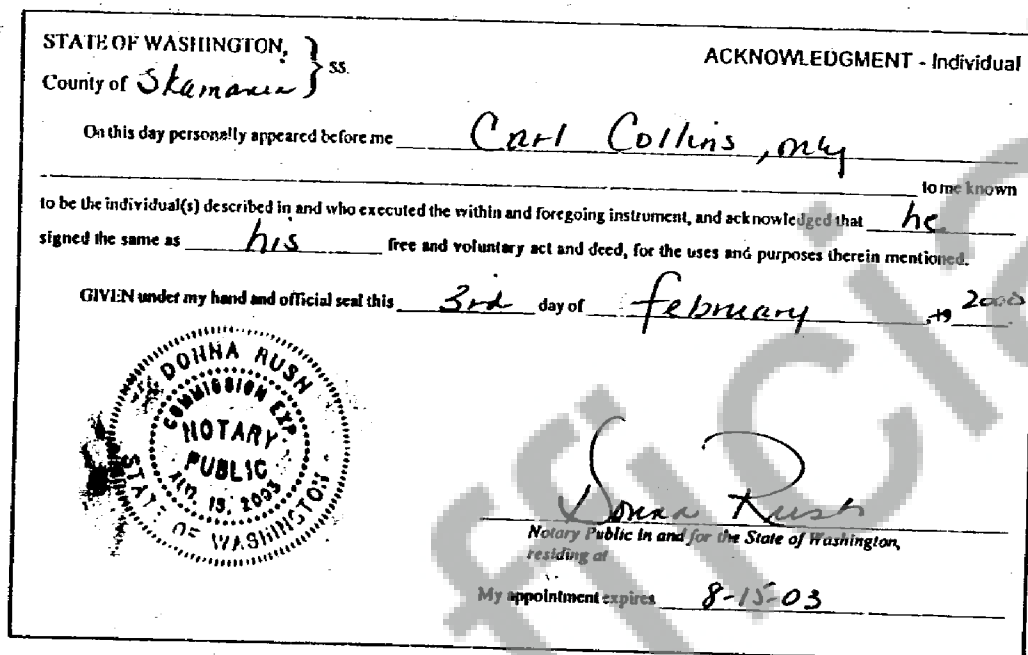 STATE OF WASHINGTON,
ACKNOWLEDGMENT - Individual
County of Skamania } ss.
On this day personally appeared before me Carl Collins, only
to me known
to be the individual(s) described in and who executed the within and foregoing instrument, and acknowledged that he
signed the same as his free and voluntary act and deed, for the uses and purposes therein mentioned.
GIVEN under my hand and official seal this 3rd day of february, 19 2000
DONNA RUSH
COMMISSION EXP.
NOTARY
PUBLIC
15, 2003
STATE OF WASHINGTON
Donna Rush
Notary Public in and for the State of Washington,
residing at
My appointment expires 8-15-03
ffici